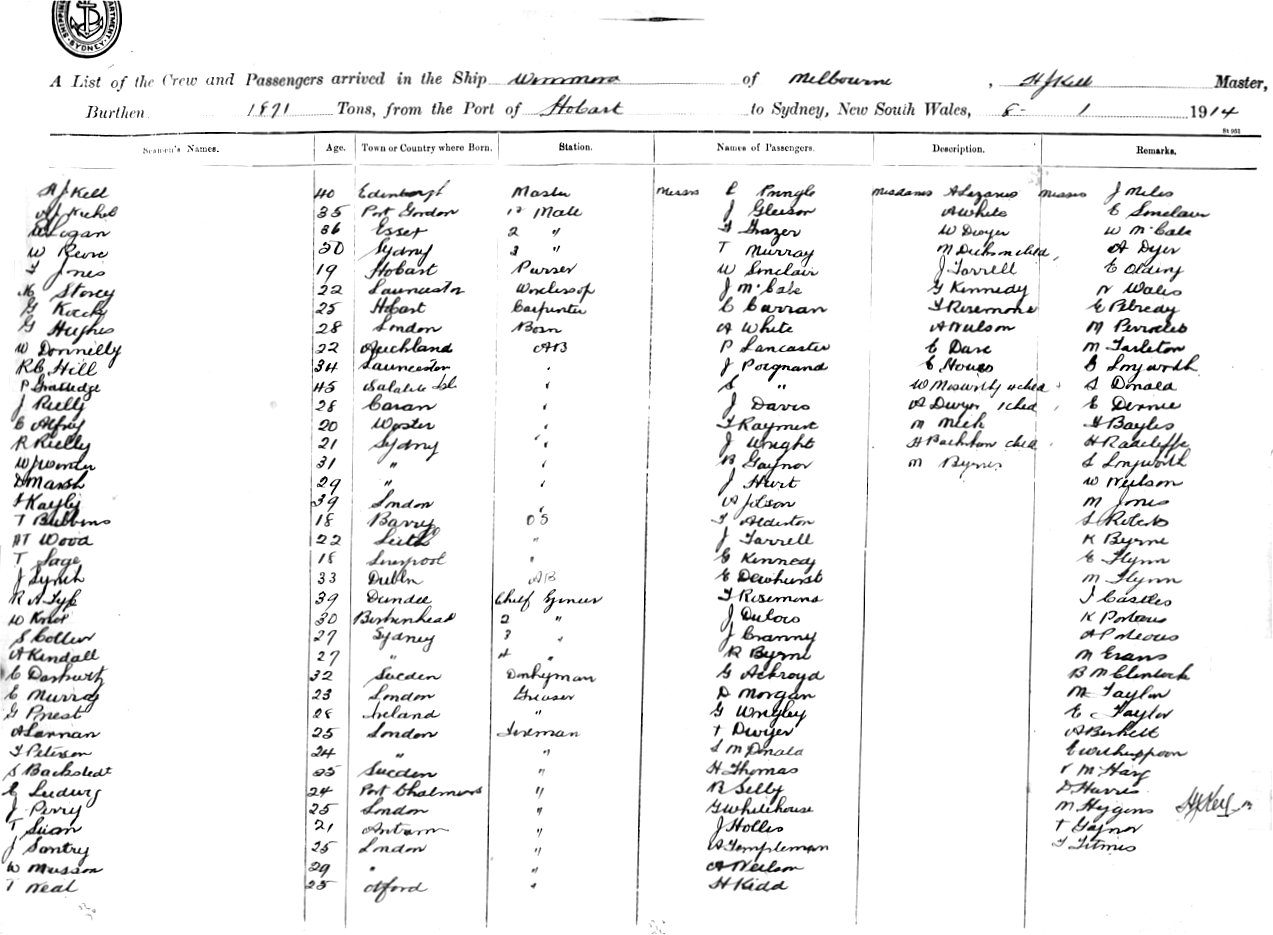 DEPARTMENT
SHIPPING
SYDNEY
A List of the Crew and Passengers arrived in the Ship Wimmera of Melbourne, H J Kell Master,
Burthen 1871 Tons, from the Port of Hobart to Sydney, New South Wales, 8- 1 1914
St 951
Seamen's Names. Age. Town or Country where Born. Station. Names of Passengers. Description. Remarks.
H J Kell 40 Edinburgh Master Messrs E Pringle Mesdames A Lazarus Misses J Miles
35 Port Gordon 1st Mate J Gleeson A White E Sinclair
W Logan 36 Essex 2 " F Frazer W Dwyer W McCabe
W Rewe Sydney 3 " T Murray M Dickson child, A Dyer
F Jones 19 Hobart Purser W Sinclair J Farrell E
Storey 22 Launceston J McCabe G Kennedy V Wales
G 25 Hobart Carpenter C Curran F Rosemond E
G Hughes 28 London Bosn A White A Neilson M
W Donnelly 22 Auckland AB P Lancaster E Dare M Tarleton
R C Hill 34 Launceston " J Poignand E B Longworth
P 45 " S " W 4 ched S Donald
J Rielly 28 Cavan " J Davis A Dwyer 1 ched, E Dennie
C Alfrey 20 " F Rayment M Mick H Bayles
R Rielly 21 Sydney " J Wright H child H Radcliffe
31 " " B Gaynor M Byrnes S Longworth
D Marsh 29 " " J Hurt W Neilson
F Kayly 39 London " M Jones
T Bubbins 18 Barry OS F Alderton S
H T Wood 22 Leith " J Farrell K Byrne
T Sage 18 Liverpool " G Kennedy E Flynn
J Lynch 33 Dublin AB E Dewhurst M Flynn
R A 39 Dundee Chief Egineer F Rosemond J Castles
W 30 Birkenhead 2 " J K Porteous
S Collier 27 Sydney 3 " J Cranny A Porteous
A Kendall 27 " 4 " R Byrne M Evans
C 32 Sweden Donkyman G Ackroyd B McClintock
E Murray 23 London Greaser D Morgan M Taylor
G Priest 28 Ireland " G Wrigley E Taylor
A Lannan 25 London Fireman T Dwyer A Birkett
F Peterson 24 " " S McDonald E Witherspoon
S Backstedt 25 Sweden " H Thomas V McHarg
E Ludwig 24 Port Chalmers " R Selly D Harris
J Perry 25 London " G Whitehouse M Higgins
T 21 Antrim " J Holles T Gaynor
J Santry 25 London " A Templeman F Titmis
W Musson 29 " " A Neilson
T Neal 25 " H Kidd